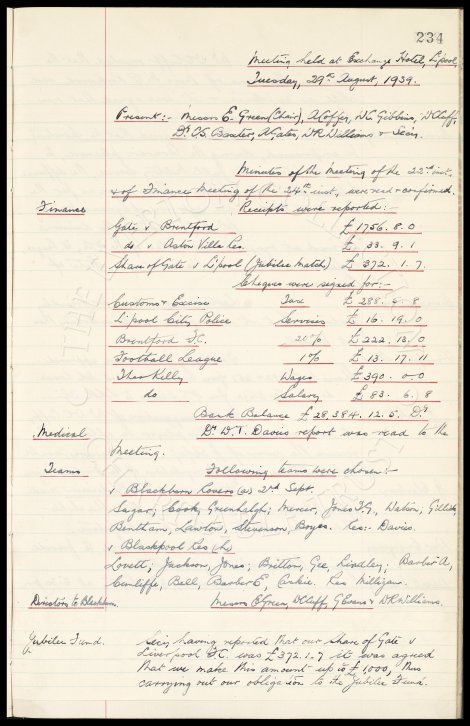 234
Meeting held at Exchange Hotel, L'pool,
Tuesday, 29th August, 1939.
Present:- Messrs E. Green (Chair), A Coffey, W.C. Gibbins, W Cuff,
Dr C.S. Baxter, A Gates, W R Williams & Secy.
Minutes of the Meeting of the 22nd inst.
& of Finance Meeting of the 24th inst, were read & confirmed.
Finance Receipts were reported:-
Gate v Brentford £1756. 8. 0
do v Aston Villa Res. £ 33. 9. 1
Share of Gate v L'pool (Jubilee Match) £ 372. 1. 7
Cheques were signed for:-
Customs & Excise Tax £ 288. 6. 8
L'pool City Police Services £ 16. 19. 0
Brentford F.C. 20% £ 222. 13. 0
Football League 1% £ 13. 17. 11
Theo Kelly Wages £390. 0. 0
do Salary £ 83. 6. 8
Bank Balance £28,384. 12. 5. Dr
Medical Dr. D.T. Davis report was read to the
Meeting.
Teams Following teams were chosen:-
v Blackburn Rovers (a) 2nd Sept.
Sagar; Cook, Greenhalgh; Mercer, Jones T.G., Watson, Gillick,
Bentham, Lawton, Stevenson, Boyes. Res:- Davis.
v Blackpool Res (h)
Lovett; Jackson, Jones; Britton, Gee, Lindley; Barber A,
Cunliffe, Bell, Barber E, Caskie. Res Milligan.
Directors to Blackburn. Messrs E Green, W Cuff, G Evans & W R Williams.
Jubilee Fund. Secy having reported that our Share of Gate v
Liverpool F.C. was £372.1.7 it was agreed
that we make this amount up to £1,000, thus
carrying out our obligation to the Jubilee Fund.